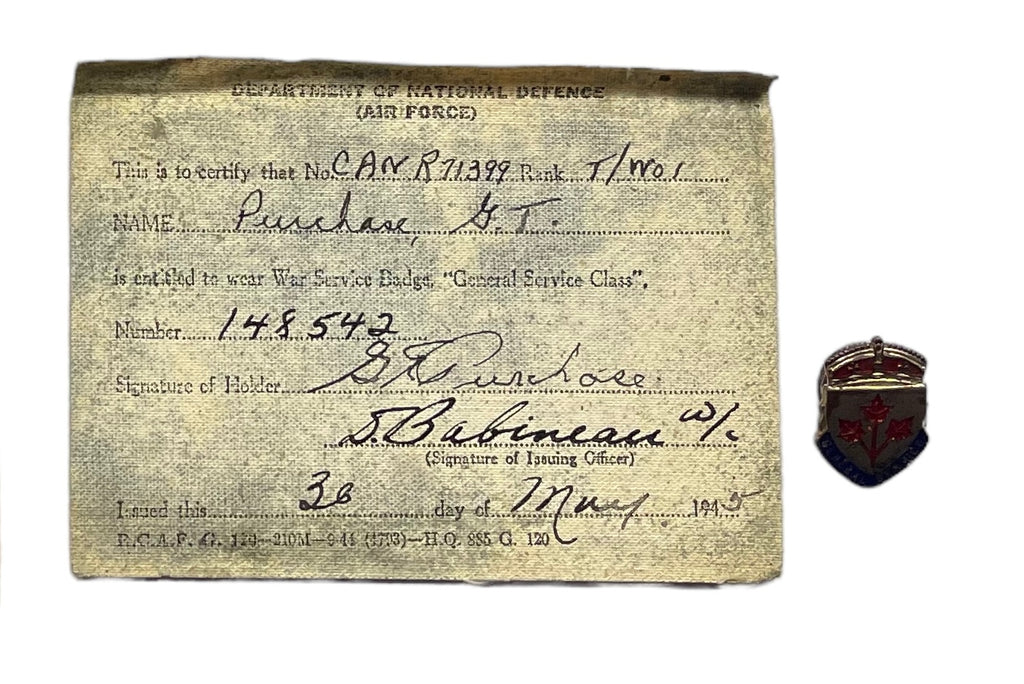 DEPARTMENT OF NATIONAL DEFENCE
(AIR FORCE)
This is to certify that No. CAN R71399 Rank T/WO1
NAME Purchase, G. T.
is entitled to wear War Service Badge, "General Service Class",
Number 148542
Signature of Holder G T Purchase
S. Babineau W/C
(Signature of Issuing Officer)
Issued this 30 day of May 1945
R.C.A.F. G. 120—210M—9-44 (4793)—H.Q. 885 G. 120